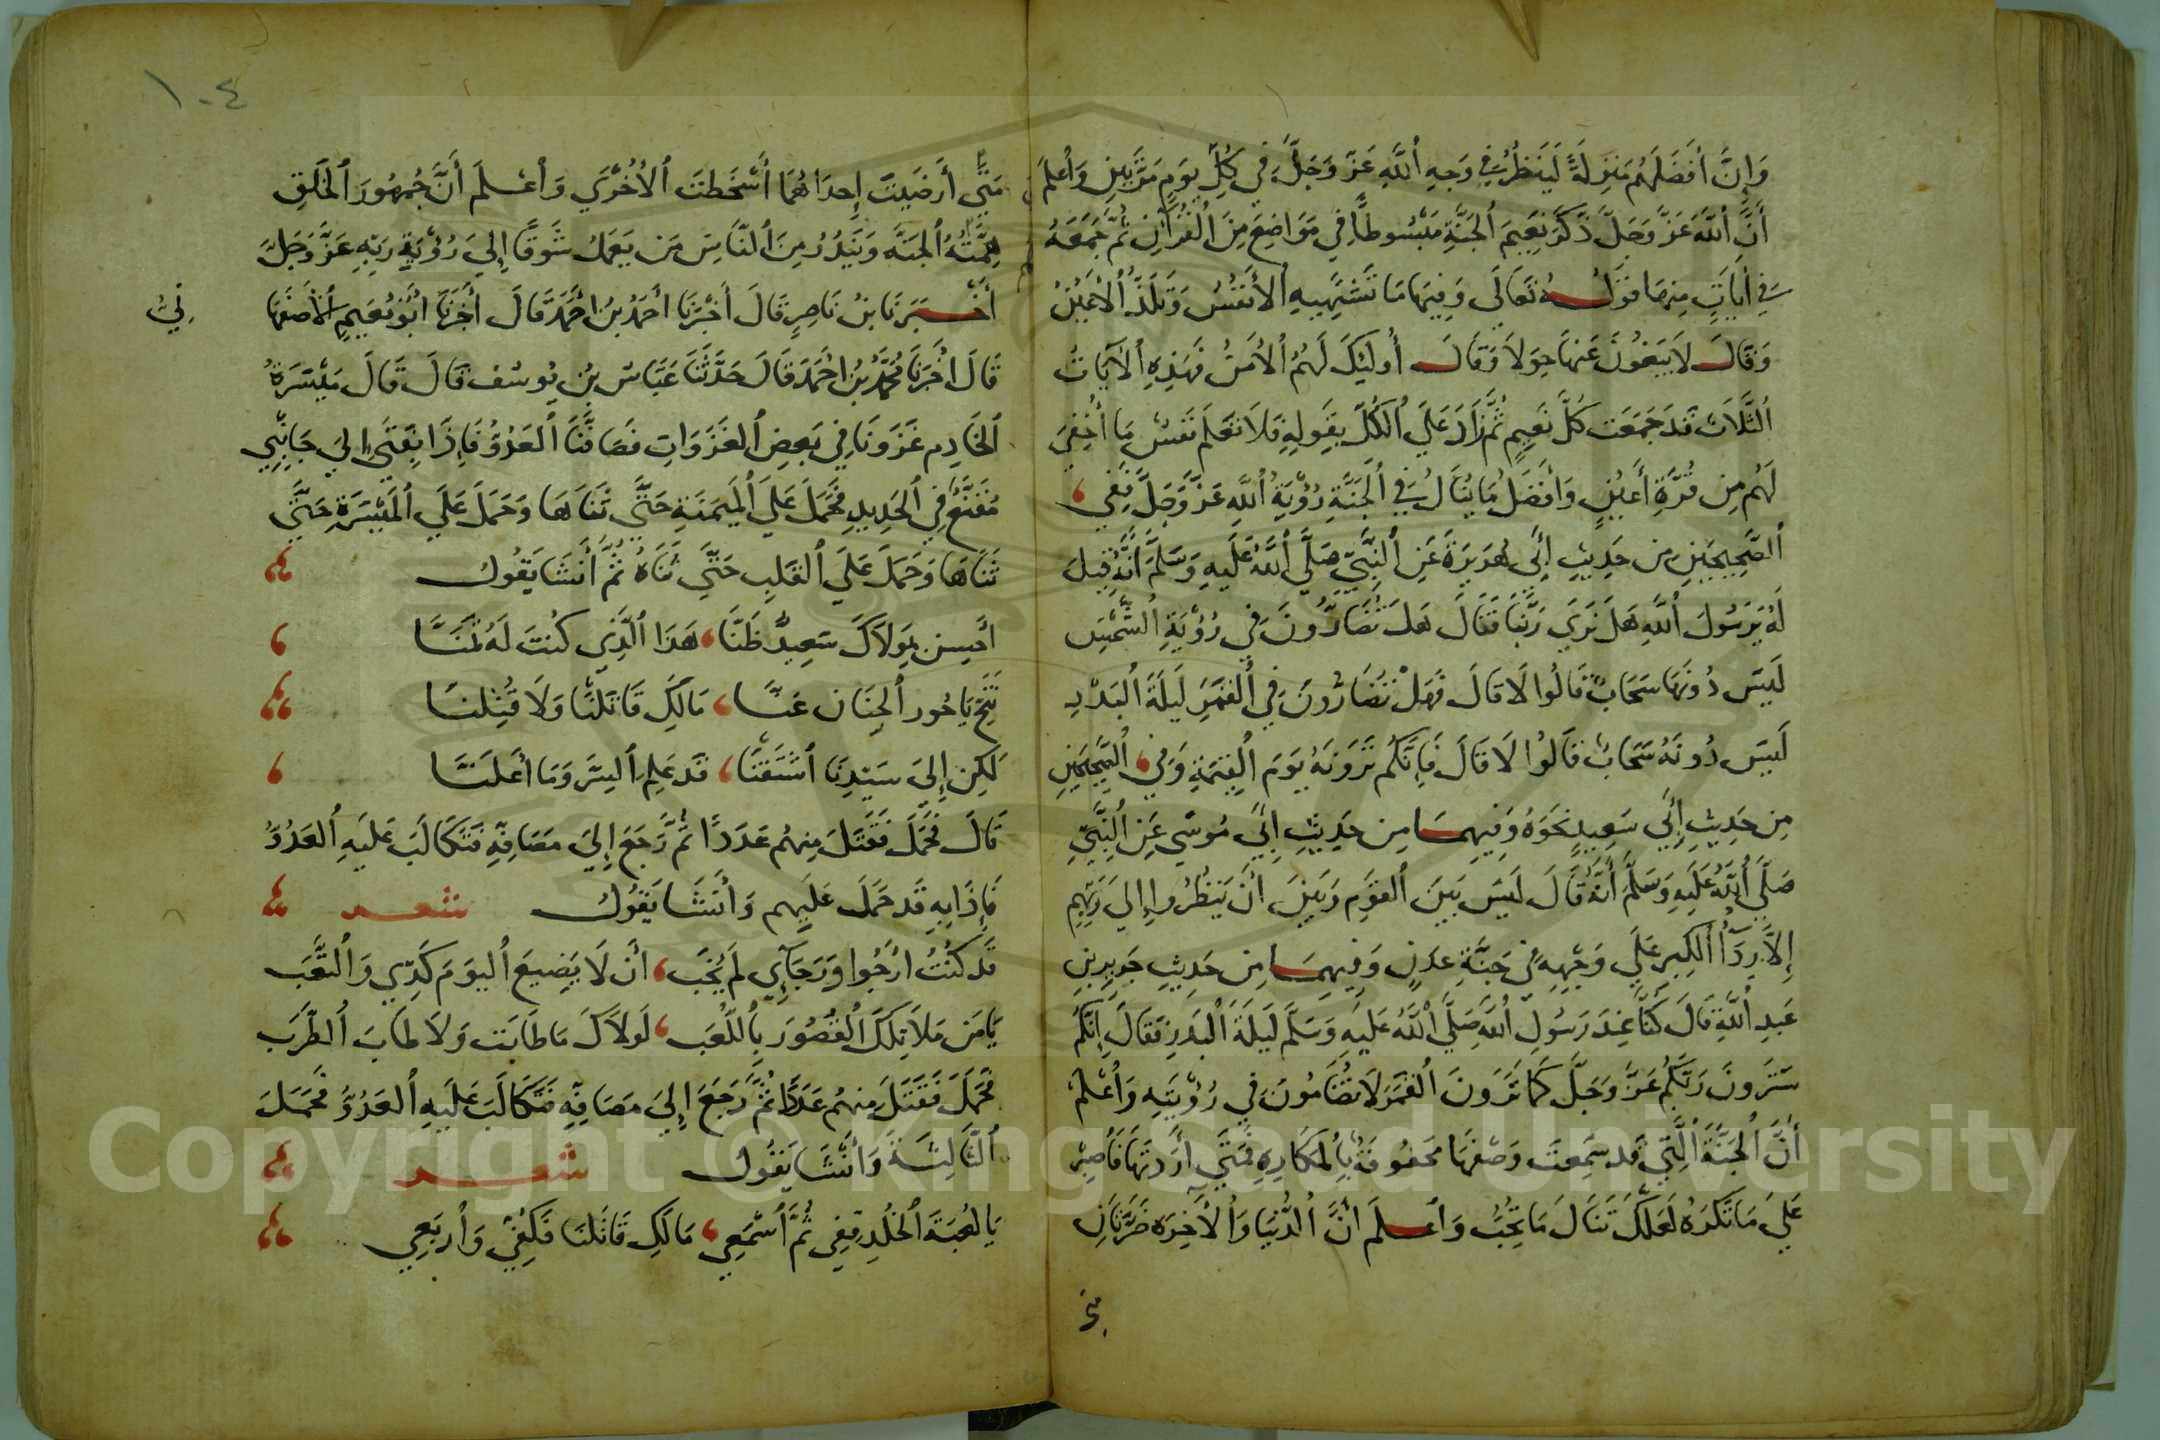 وَإِنَّ أَفْضَلَهُمْ مَنْزِلَةً لَيَنْظُرُ فِي وَجْهِ اللَّهِ عَزَّ وَجَلَّ فِي كُلِّ يَوْمٍ مَرَّتَيْنِ وَاعْلَمْ
أَنَّ اللَّهَ عَزَّ وَجَلَّ ذَكَرَ نَعِيمَ الْجَنَّةِ مَبْسُوطًا فِي مَوَاضِعَ مِنَ الْقُرْآنِ ثُمَّ جَمَعَهُ
فِي آيَاتٍ مِنْهَا قَوْلُهُ تَعَالَى وَفِيهَا مَا تَشْتَهِيهِ الْأَنْفُسُ وَتَلَذُّ الْأَعْيُنُ
وَقَالَ لَا يَبْغُونَ عَنْهَا حِوَلًا وَقَالَ أُولَئِكَ لَهُمُ الْأَمْنُ فَهَذِهِ الْآيَاتُ
الثَّلَاثُ قَدْ جَمَعَتْ كُلَّ نَعِيمٍ ثُمَّ زَادَ عَلَى الْكُلِّ بِقَوْلِهِ فَلَا تَعْلَمُ نَفْسٌ مَا أُخْفِيَ
لَهُمْ مِنْ قُرَّةِ أَعْيُنٍ وَأَفْضَلُ مَا يُنَالُ فِي الْجَنَّةِ رُؤْيَةُ اللَّهِ عَزَّ وَجَلَّ فَفِي
الصَّحِيحَيْنِ مِنْ حَدِيثِ أَبِي هُرَيْرَةَ عَنِ النَّبِيِّ صَلَّى اللَّهُ عَلَيْهِ وَسَلَّمَ أَنَّهُ قِيلَ
لَهُ يَا رَسُولَ اللَّهِ هَلْ نَرَى رَبَّنَا فَقَالَ هَلْ تُضَارُّونَ فِي رُؤْيَةِ الشَّمْسِ
لَيْسَ دُونَهَا سَحَابٌ قَالُوا لَا قَالَ فَهَلْ تُضَارُّونَ فِي الْقَمَرِ لَيْلَةَ الْبَدْرِ
لَيْسَ دُونَهُ سَحَابٌ قَالُوا لَا قَالَ فَإِنَّكُمْ تَرَوْنَهُ يَوْمَ الْقِيَمَةِ وَفِي الصَّحِيحَيْنِ
مِنْ حَدِيثِ أَبِي سَعِيدٍ نَحْوَهُ وَفِيهِمَا مِنْ حَدِيثِ أَبِي مُوسَى عَنِ النَّبِيِّ
صَلَّى اللَّهُ عَلَيْهِ وَسَلَّمَ أَنَّهُ قَالَ لَيْسَ بَيْنَ الْقَوْمِ وَبَيْنَ أَنْ يَنْظُرُوا إِلَى رَبِّهِمْ
إِلَّا رِدَاءُ الْكِبْرِ عَلَى وَجْهِهِ فِي جَنَّةِ عَدْنٍ وَفِيهِمَا مِنْ حَدِيثِ جَرِيرِ بْنِ
عَبْدِ اللَّهِ قَالَ كُنَّا عِنْدَ رَسُولِ اللَّهِ صَلَّى اللَّهُ عَلَيْهِ وَسَلَّمَ لَيْلَةَ الْبَدْرِ فَقَالَ إِنَّكُمْ
سَتَرَوْنَ رَبَّكُمْ عَزَّ وَجَلَّ كَمَا تَرَوْنَ الْقَمَرَ لَا تُضَامُونَ فِي رُؤْيَتِهِ وَاعْلَمْ
أَنَّ الْجَنَّةَ الَّتِي قَدْ سَمِعْتَ وَصْفَهَا مَحْفُوفَةٌ بِالْمَكَارِهِ فَمَتَى أَرَدْتَهَا فَاصْبِرْ
عَلَى مَا تَكْرَهُ لَعَلَّكَ تَنَالُ مَا تُحِبُّ وَاعْلَمْ أَنَّ الدُّنْيَا وَالْآخِرَةَ ضَرَّتَانِ
متى
١٠٤
مَتَى أَرْضَيْتَ إِحْدَاهُمَا أَسْخَطْتَ الْأُخْرَى وَاعْلَمْ أَنَّ جُمْهُورَ الْخَلْقِ
هِمَّتُهُ الْجَنَّةُ وَيَنْدُرُ مِنَ النَّاسِ مَنْ يَعْمَلُ شَوْقًا إِلَى رُؤْيَةِ رَبِّهِ عَزَّ وَجَلَّ
أَخْبَرَنَا بْنُ نَاصِرٍ قَالَ أَخْبَرَنَا أَحْمَدُ بْنُ أَحْمَدَ قَالَ أَخْبَرَنَا أَبُو نُعَيْمٍ الْأَصْفَهَا
نِيُّ
قَالَ أَخْبَرَنَا مُحَمَّدُ بْنُ أَحْمَدَ قَالَ حَدَّثَنَا عَبَّاسُ بْنُ يُوسُفَ قَالَ قَالَ مَيْسَرَةُ
الْخَادِمُ غَزَوْنَا فِي بَعْضِ الْغَزَوَاتِ فَصَافَّنَا الْعَدُوُّ فَإِذَا بِفَتًى إِلَى جَانِبِي
مُقَنَّعٌ فِي الْحَدِيدِ فَحَمَلَ عَلَى الْمَيْمَنَةِ حَتَّى ثَنَاهَا وَحَمَلَ عَلَى الْمَيْسَرَةِ حَتَّى
ثَنَاهَا وَحَمَلَ عَلَى الْقَلْبِ حَتَّى ثَنَاهُ ثُمَّ أَنْشَا يَقُولُ
أَحْسِنْ بِمَوْلَاكَ سَعِيدُ ظَنَّا هَذَا الَّذِي كُنْتَ لَهُ تَمَنَّا
تَنَحَّ يَا حُورَ الْجِنَانِ عَنَّا مَالَكِ قَاتَلْنَا وَلَا قُتِلْنَا
لَكِنْ إِلَى سَيِّدِنَا اشْتَقْنَا قَدْ عَلِمَ السِّرَّ وَمَا أَعْلَنَّا
قَالَ فَحَمَلَ فَقَتَلَ مِنْهُمْ عَدَدًا ثُمَّ رَجَعَ إِلَى مَصَافِّهِ فَتَكَالَبَ عَلَيْهِ الْعَدُوُّ
فَإِذَا بِهِ قَدْ حَمَلَ عَلَيْهِمْ وَأَنْشَا يَقُولُ شعر
قَدْ كُنْتُ أَرْجُوا وَرَجَائِي لَمْ يَخِبْ أَنْ لَا يَضِيعَ الْيَوْمَ كَدِّي وَالتَّعَبْ
يَا مَنْ مَلَا تِلْكَ الْقُصُورَ بِاللُّعَبْ لَوْلَاكَ مَا طَابَتْ وَلَا طَابَ الطَّرَبْ
فَحَمَلَ فَقَتَلَ مِنْهُمْ عَدَدًا ثُمَّ رَجَعَ إِلَى مَصَافِّهِ فَتَكَالَبَ عَلَيْهِ الْعَدُوُّ فَحَمَلَ
الثَّالِثَةَ وَأَنْشَا يَقُولُ شعر
يَا لُعْبَةَ الْخُلْدِ قِفِي ثُمَّ اسْمَعِي مَالَكِ قَاتَلْنَا فَكُفِّي وَارْبَعِي
Copyright © King Saud University